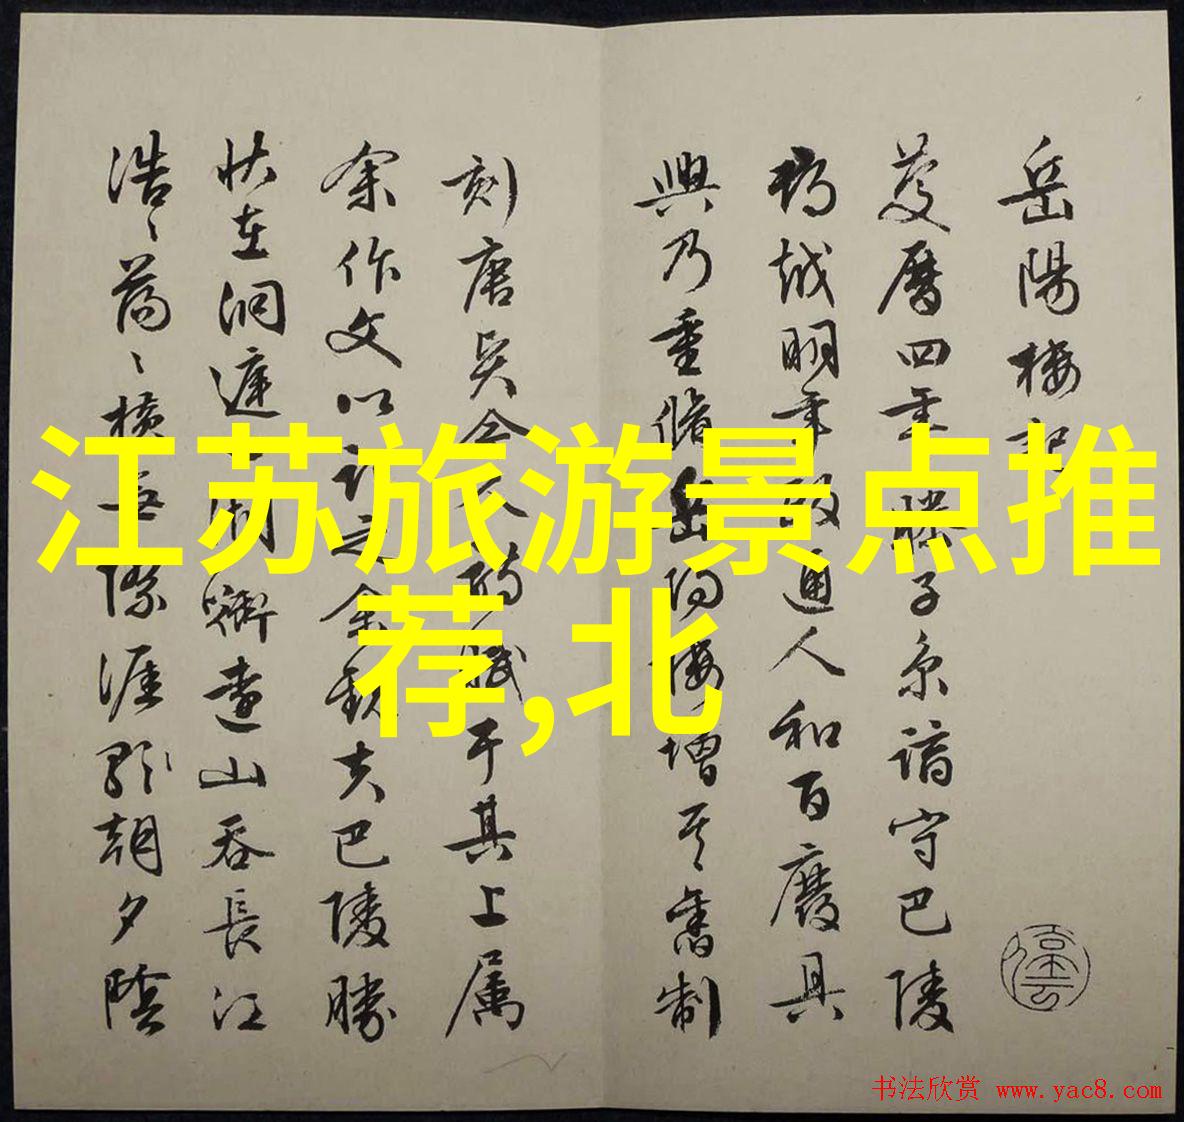 岳陽樓記
慶曆四年滕子京謫守巴陵
郡越明年政通人和百廢具
興乃重脩岳陽樓增其舊制
刻唐賢今人詩賦于其上屬
余作文以記之余觀夫巴陵勝
狀在洞庭一湖銜遠山吞長江
浩〻蕩〻橫無際涯朝夕陰
江苏旅游景点推
荐,北
书法欣赏 www.yac8.com